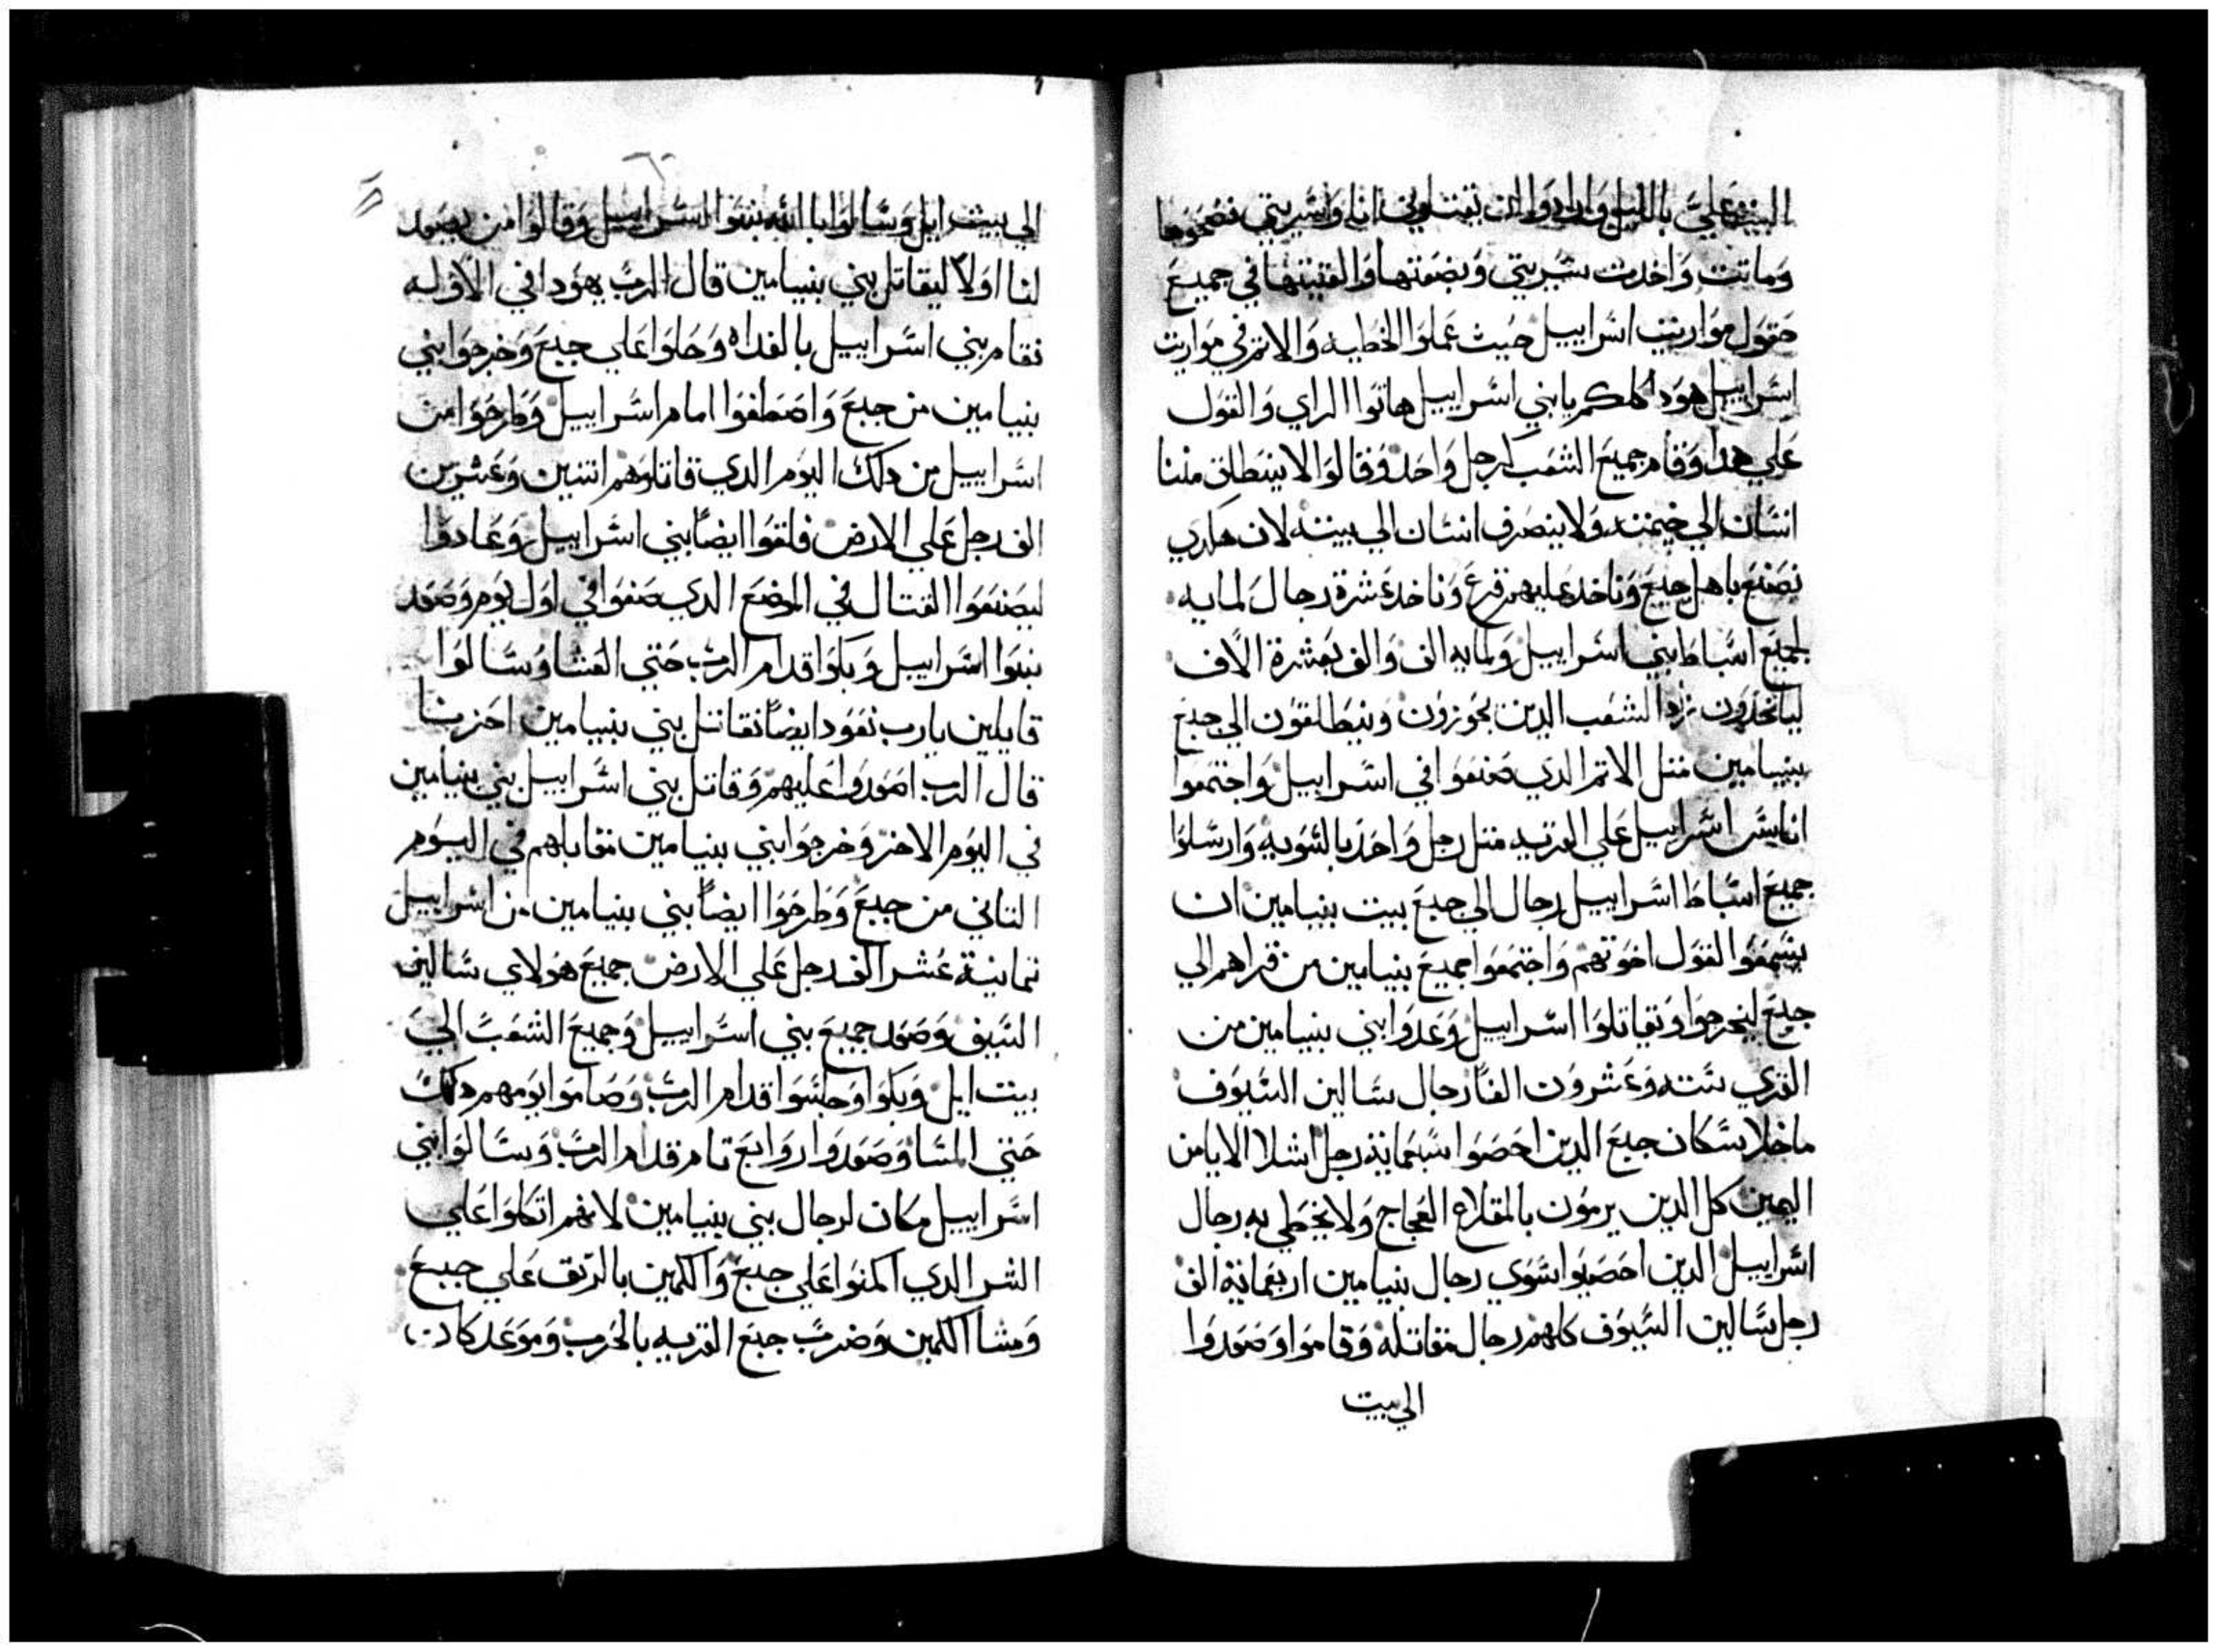 البيت علي بالليل وارادوا ان يقتلوني انا وسريتي فضحوها
وماتت واخدت سريتي وبضعتها والقيتها في جميع
حقول مواريت اسراييل حيث عملوا الخطيه والاتم في مواريت
اسراييل هودا كلكم يا بني اسراييل هاتوا الراي والقول
علي هدا وقام جميع الشعب كرجل واحد وقالوا لا ينطلق مننا
انسان الي خيمته ولا ينصرف انسان الي بيته لان هكدي
نصنع باهل جبع وناخد عليهم قرع وناخد عشرة رجال لمايه
لجميع اسباط بني اسراييل ولمايه الف والف بعشرة الاف
لياخدون زاد الشعب الدين يجوزون وينطلقون الي جبع
بنيامين متل الاتم الدي صنعوا في اسراييل واجتمعوا
اناس اسراييل علي القريه متل رجل واحد بالسويه وارسلوا
جميع اسباط اسراييل رجال الي جبع بيت بنيامين ان
يسمعوا لقول اخوتهم واجتمعوا جميع بنيامين من قراهم الي
جبع ليخرجوا وتقاتلوا اسراييل وعدوا بني بنيامين من
القري سته وعشرون الفا رجال سالين السيوف
ماخلا سكان جبع الدين احصوا سبعماية رجل اشلا الايامن
اليمين كل الدين يرمون بالمقلاع الحجاج ولا يخطي به رجال
اسراييل الدين احصيوا سوي رجال بنيامين اربعماية الف
رجل سالين السيوف كلهم رجال مقاتلة وقاموا وصعدوا
الي بيت
الي بيت ايل وسالوا بالله بنوا اسراييل وقالوا من يصعد
لنا اولا ليقاتل بني بنيامين قال الرب يهودا في الاوله
فقام بني اسراييل بالغداه وحلوا علي جبع وخرجوا بني
بنيامين من جبع واصطفوا امام اسراييل وطرحوا من
اسراييل من دلك اليوم الدي قاتلوهم اتنين وعشرين
الف رجل علي الارض فلقوا ايضا بني اسراييل وعادوا
ليصنعوا القتال في الموضع الدي صنعوا في اول يوم وصعد
بنوا اسراييل وبكوا قدام الرب حتي العشا وسالوا
قايلين يارب نعود ايضا نقاتل بني بنيامين اخزتنا
قال الرب اصعدوا عليهم وقاتل بني اسراييل بني بنيامين
في اليوم الاخر وخرجوا بني بنيامين مقابلهم في اليوم
التاني من جبع وطرحوا ايضا بني بنيامين من اسراييل
تمانية عشر الف رجل علي الارض جميع هولاي سالين
السيف وصعد جميع بني اسراييل وجميع الشعب الي
بيت ايل وبكوا وجلسوا قدام الرب وصاموا يومهم دلك
حتي المسا وصعدوا روابع تام قدام الرب وسالوا بني
اسراييل مكان لرجال بني بنيامين لانهم اتكلوا علي
الشر الدي اكمنوا علي جبع والكمين بالزق علي جبع
ومشا الكمين وضرب جبع القريه بالحرب وموعد كان